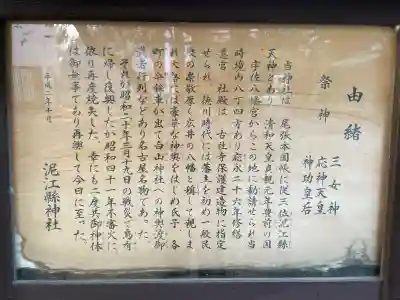 由緒
祭神
三女神
応神天皇
神功皇后
当神社は、尾張本国帳に従三位泥江縣
天神とあり、清和天皇貞観元年豊前の国
宇佐八幡宮からこの地に勧請せられ当
時境内八丁四方あり応永二十六年修繕
造宮 社殿は、古社寺保護建造物に指定
せられ、徳川時代には藩主を初め一般民
衆の崇敬厚く広井の八幡と称して親しま
れ大
には豪華な神輿をはじめ氏子 各
町の
車が出て白山神社への神輿渡御
行列などあり名古屋名物であった。
それが昭和二十年三月十九日の戦災で烏有
に帰し復興したが昭和四十一年不審火に
依り再度焼失した。幸にも二度共御神体
は御無事であり再興して今日に至った。
平成二年十月
泥江縣神社